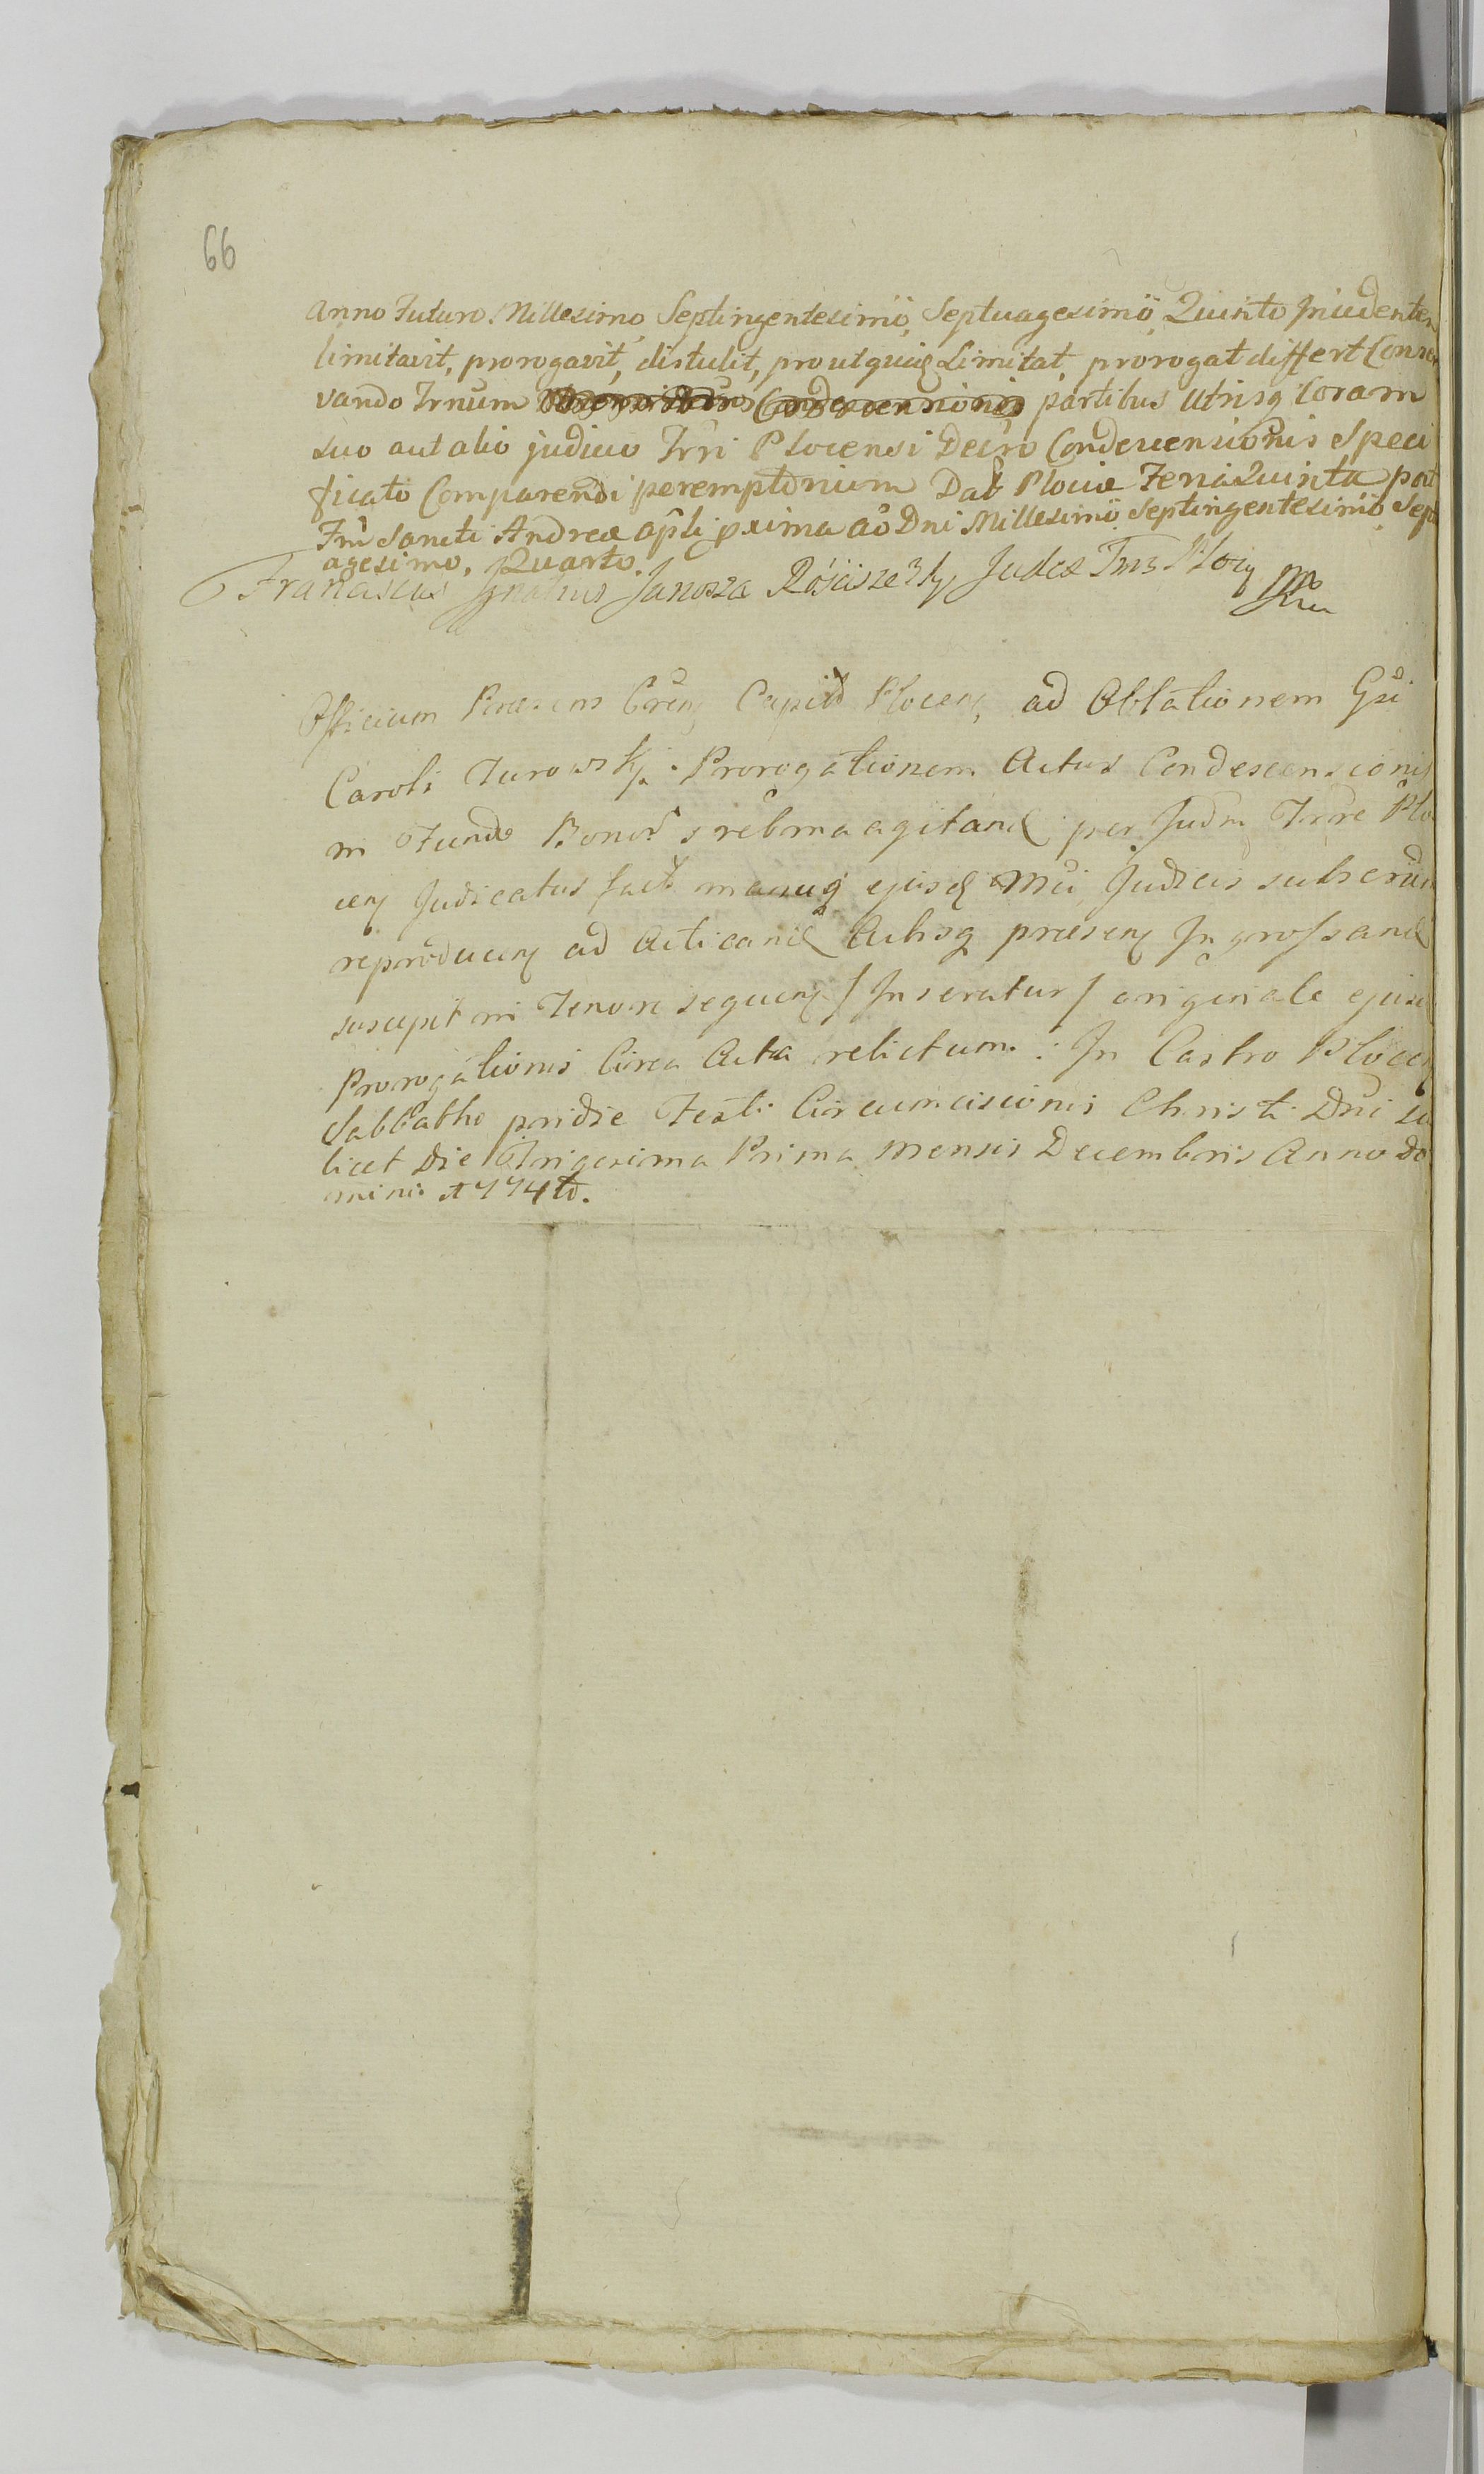 66
Anno Futuro Millesimo Septingentesimo Septuagesimo Quinto Incidenten
limitavit, prorogavit, distulit, prout quiq Limitat, prorogat differt Conser
vando Trnum Condescensionis partibus Utrisq Coram
suo aut alio judicio Trri Plocensi Decro Condescensionis Speci
ficato Comparendi peremptorium Dat Plociæ Feria Quinta post
Ftu Sancti Andreæ apli pxima aõ Dni Millesimo Septingentesimo Sept
agesimo, Quarto.
Franciscus Ignatius Janosza Rościszesky Judex Trrs Plocen
Officium Præsens Cren Capit Plocen, ad Oblationem Gsi
Caroli Turowsky Prorogationem Actus Condescensionis
in Fundo Bonor per Judm Terre Plo
cen Judicatus fact manuq ejusd Mci Judicis subscript
reproducen ad Acticand Actisq præsen Ingrossand
suscepit in Tenore sequen / Inseratur / originale ejusd
Prorogationis Circa Acta relictum. In Castro Plocen
Sabbatho pridie Festi Circumcisionis Christi Dni sci
licet Die Trigesima Prima Mensis Decembris Anno Do
mini 1774to.